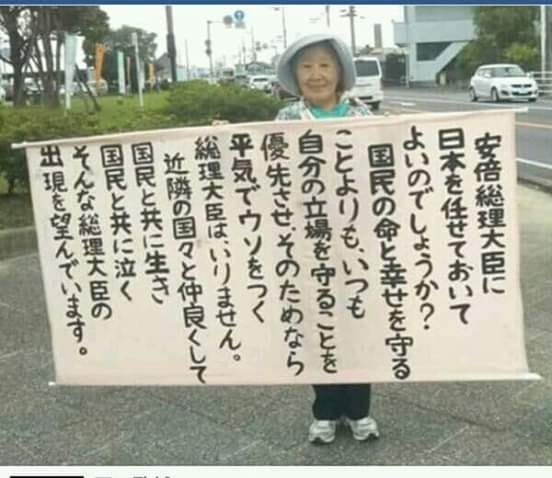 安倍総理大臣に
日本を任せておいて
よいのでしょうか?
国民の命と幸せを守る
ことよりも、いつも
自分の立場を守ることを
優先させ、そのためなら
平気でウソをつく
総理大臣は、いりません。
近隣の国々と仲良くして
国民と共に生き
国民と共に泣く
そんな総理大臣の
出現を望んでいます。